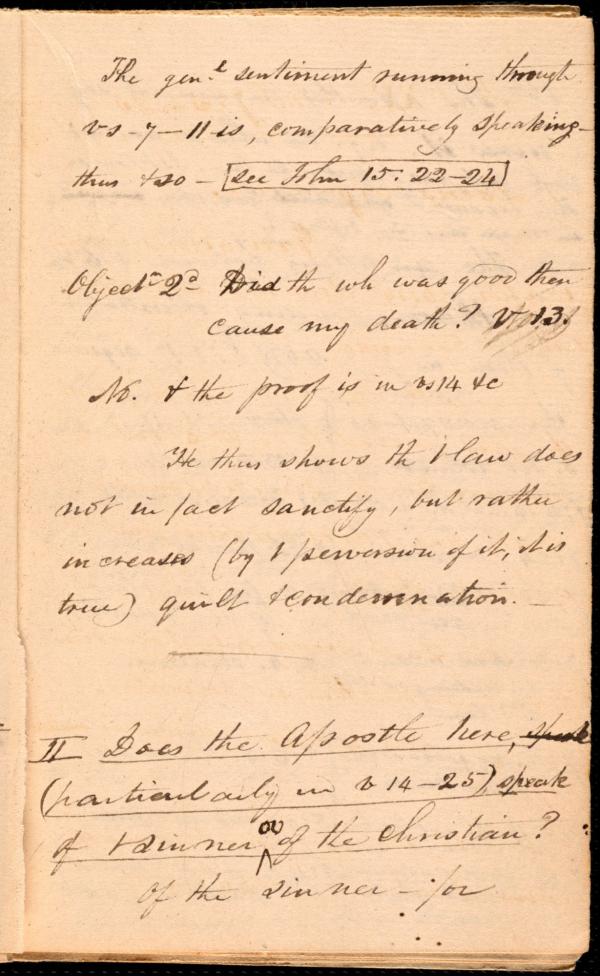 The genl sentiment running through
vs-7-11-is, comparatively speaking-
thus & so - see John 15: 22-24
Objectn 2d Did th wh was good then
cause my death? V. 13.
No. & the proof is in vs 14 &c
He thus shows th t law does
not in fact sanctify, but rather
increases (by t perversion of it, it is
true) guilt & condemnation. -
II Does the Apostle here, speak
(particularly in v 14-25), speak
of t sinner or of the Christian?
of the sinner - for